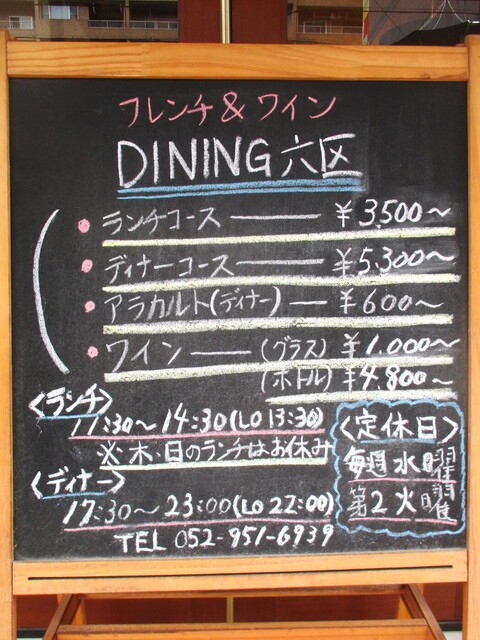 フレンチ & ワイン
DINING 六区
ランチコース — ¥3,500〜
ディナーコース — ¥5,300〜
アラカルト(ディナー) — ¥600〜
ワイン — (グラス) ¥1,000〜
(ボトル) ¥4,800〜
<ランチ>
11:30〜14:30(LO 13:30)
※木、日のランチはお休み
<ディナー>
17:30〜23:00(LO 22:00)
TEL 052-951-6939
<定休日>
毎週水曜
第2火曜